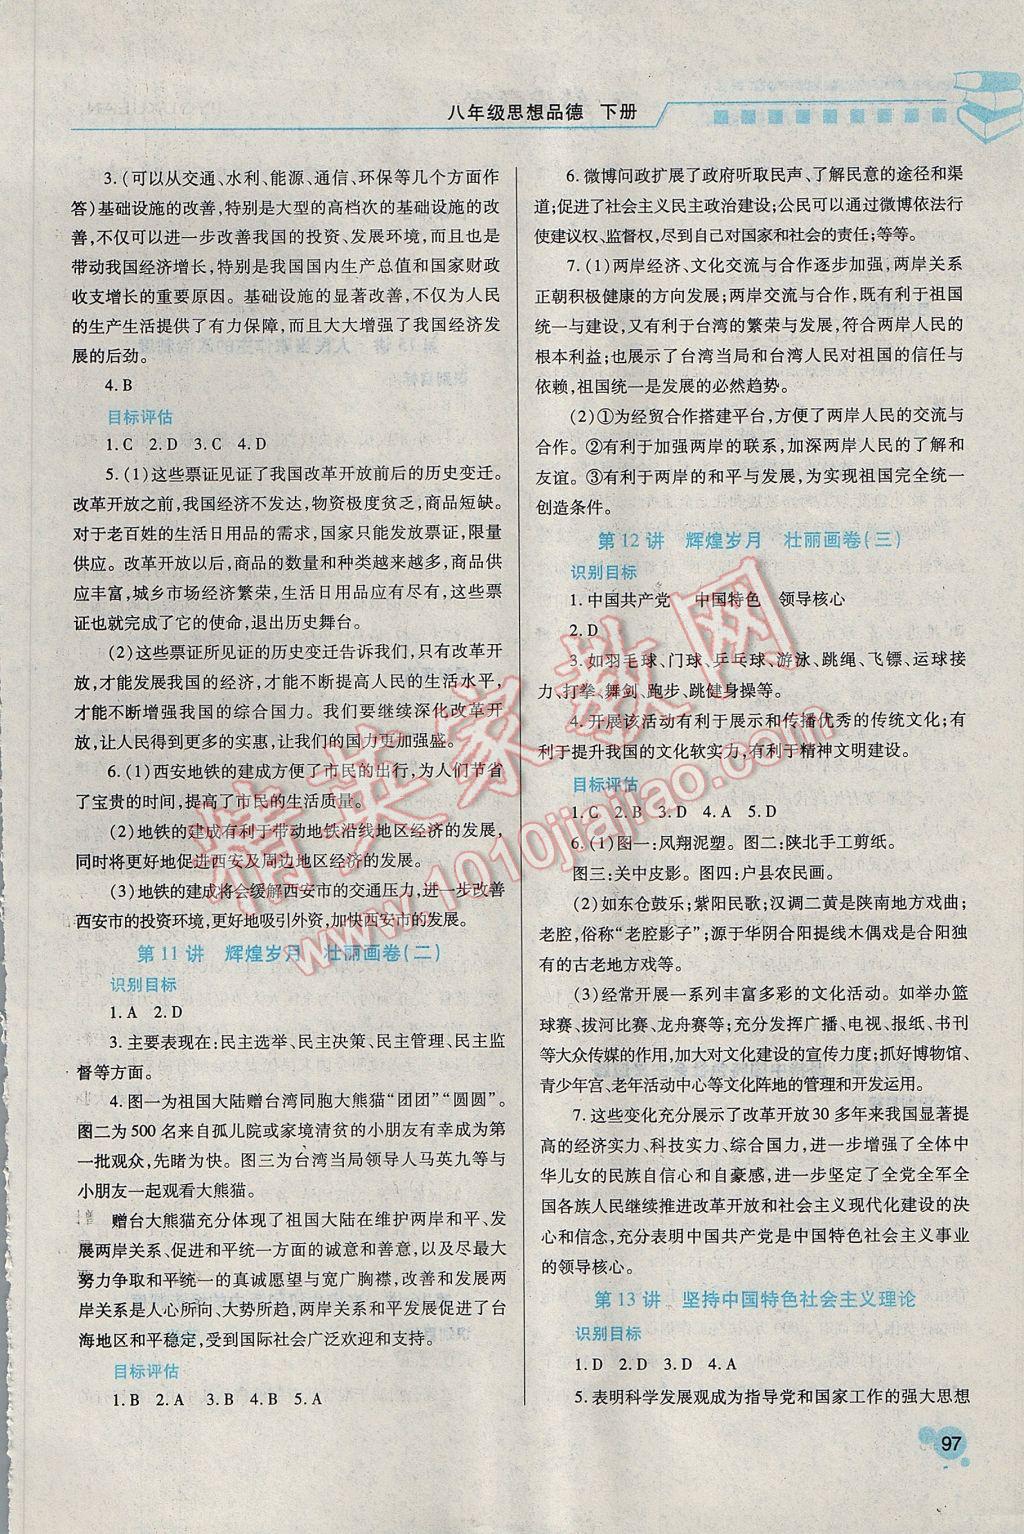 八年级思想品德 下册
3.(可以从交通、水利、能源、通信、环保等几个方面作
答)基础设施的改善,特别是大型的高档次的基础设施的改
善,不仅可以进一步改善我国的投资、发展环境,而且也是
带动我国经济增长,特别是我国国内生产总值和国家财政
收支增长的重要原因。基础设施的显著改善,不仅为人民
的生产生活提供了有力保障,而且大大增强了我国经济发
展的后劲。
4. B
目标评估
1. C 2. D 3. C 4. D
5.(1)这些票证见证了我国改革开放前后的历史变迁。
改革开放之前,我国经济不发达,物资极度贫乏,商品短缺。
对于老百姓的生活日用品的需求,国家只能发放票证,限量
供应。改革开放以后,商品的数量和种类越来越多,商品供
应丰富,城乡市场经济繁荣,生活日用品应有尽有,这些票
证也就完成了它的使命,退出历史舞台。
(2)这些票证所见证的历史变迁告诉我们,只有改革开
放,才能发展我国的经济,才能不断提高人民的生活水平,
才能不断增强我国的综合国力。我们要继续深化改革开
放,让人民得到更多的实惠,让我们的国力更加强盛。
6.(1)西安地铁的建成方便了市民的出行,为人们节省
了宝贵的时间,提高了市民的生活质量。
(2)地铁的建成有利于带动地铁沿线地区经济的发展,
同时将更好地促进西安及周边地区经济的发展。
(3)地铁的建成将会缓解西安市的交通压力,进一步改善
西安市的投资环境,更好地吸引外资,加快西安市的发展。
第 11 讲 辉煌岁月 壮丽画卷(二)
识别目标
1. A 2. D
3. 主要表现在:民主选举、民主决策、民主管理、民主监
督等方面。
4. 图一为祖国大陆赠台湾同胞大熊猫“团团”“圆圆”。
图二为 500 名来自孤儿院或家境清贫的小朋友有幸成为第
一批观众,先睹为快。图三为台湾当局领导人马英九等与
小朋友一起观看大熊猫。
赠台大熊猫充分体现了祖国大陆在维护两岸和平、发
展两岸关系、促进和平统一方面的诚意和善意,以及尽最大
努力争取和平统一的真诚愿望与宽广胸襟,改善和发展两
岸关系是人心所向、大势所趋,两岸关系和平发展促进了台
海地区和平稳定,受到国际社会广泛欢迎和支持。
目标评估
1. B 2. A 3. B 4. B 5. A
6. 微博问政扩展了政府听取民声、了解民意的途径和渠
道;促进了社会主义民主政治建设;公民可以通过微博依法行
使建议权、监督权,尽到自己对国家和社会的责任;等等。
7.(1)两岸经济、文化交流与合作逐步加强,两岸关系
正朝积极健康的方向发展;两岸交流与合作,既有利于祖国
统一与建设,又有利于台湾的繁荣与发展,符合两岸人民的
根本利益;也展示了台湾当局和台湾人民对祖国的信任与
依赖,祖国统一是发展的必然趋势。
(2)①为经贸合作搭建平台,方便了两岸人民的交流与
合作。②有利于加强两岸的联系,加深两岸人民的了解和
友谊。③有利于两岸的和平与发展,为实现祖国完全统一
创造条件。
第 12 讲 辉煌岁月 壮丽画卷(三)
识别目标
1. 中国共产党 中国特色 领导核心
2. D
3. 如羽毛球、门球、乒乓球、游泳、跳绳、飞镖、运球接
力、打拳、舞剑、跑步、跳健身操等。
4. 开展该活动有利于展示和传播优秀的传统文化;有
利于提升我国的文化软实力,有利于精神文明建设。
目标评估
1. C 2. B 3. D 4. A 5. D
6.(1)图一:凤翔泥塑。图二:陕北手工剪纸。
图三:关中皮影。图四:户县农民画。
(2)如东仓鼓乐;紫阳民歌;汉调二黄是陕南地方戏曲;
老腔,俗称“老腔影子”;源于华阴合阳提线木偶戏是合阳独
有的古老地方戏等。
(3)经常开展一系列丰富多彩的文化活动。如举办篮
球赛、拔河比赛、龙舟赛等;充分发挥广播、电视、报纸、书刊
等大众传媒的作用,加大对文化建设的宣传力度;抓好博物馆、
青少年宫、老年活动中心等文化阵地的管理和开发运用。
7. 这些变化充分展示了改革开放 30 多年来我国显著提
高的经济实力、科技实力、综合国力,进一步增强了全体中
华儿女的民族自信心和自豪感,进一步坚定了全党全军全
国各族人民继续推进改革开放和社会主义现代化建设的决
心和信念,充分表明中国共产党是中国特色社会主义事业
的领导核心。
第 13 讲 坚持中国特色社会主义理论
识别目标
1. D 2. D 3. D 4. A
5. 表明科学发展观成为指导党和国家工作的强大思想
97
精英家教网
www.1010jiajiao.com